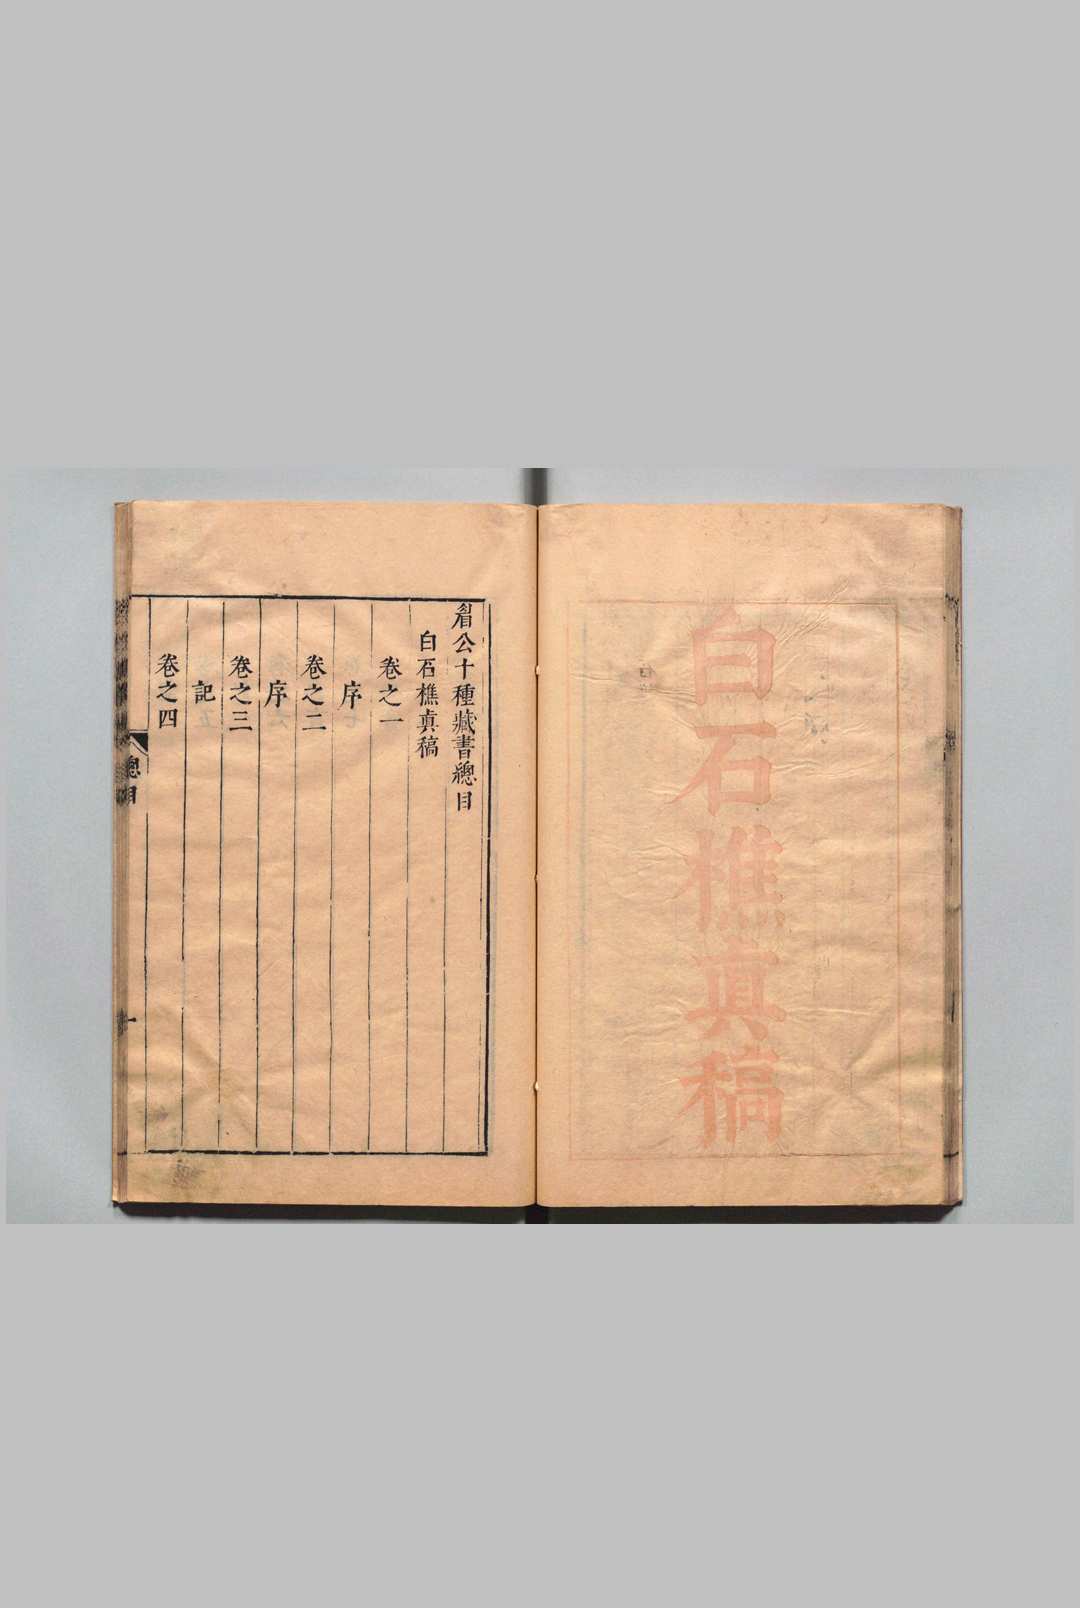 白石樵真稿
眉公十種藏書總目
白石樵真稿
卷之一
序
卷之二
序
卷之三
記
卷之四
總目
一